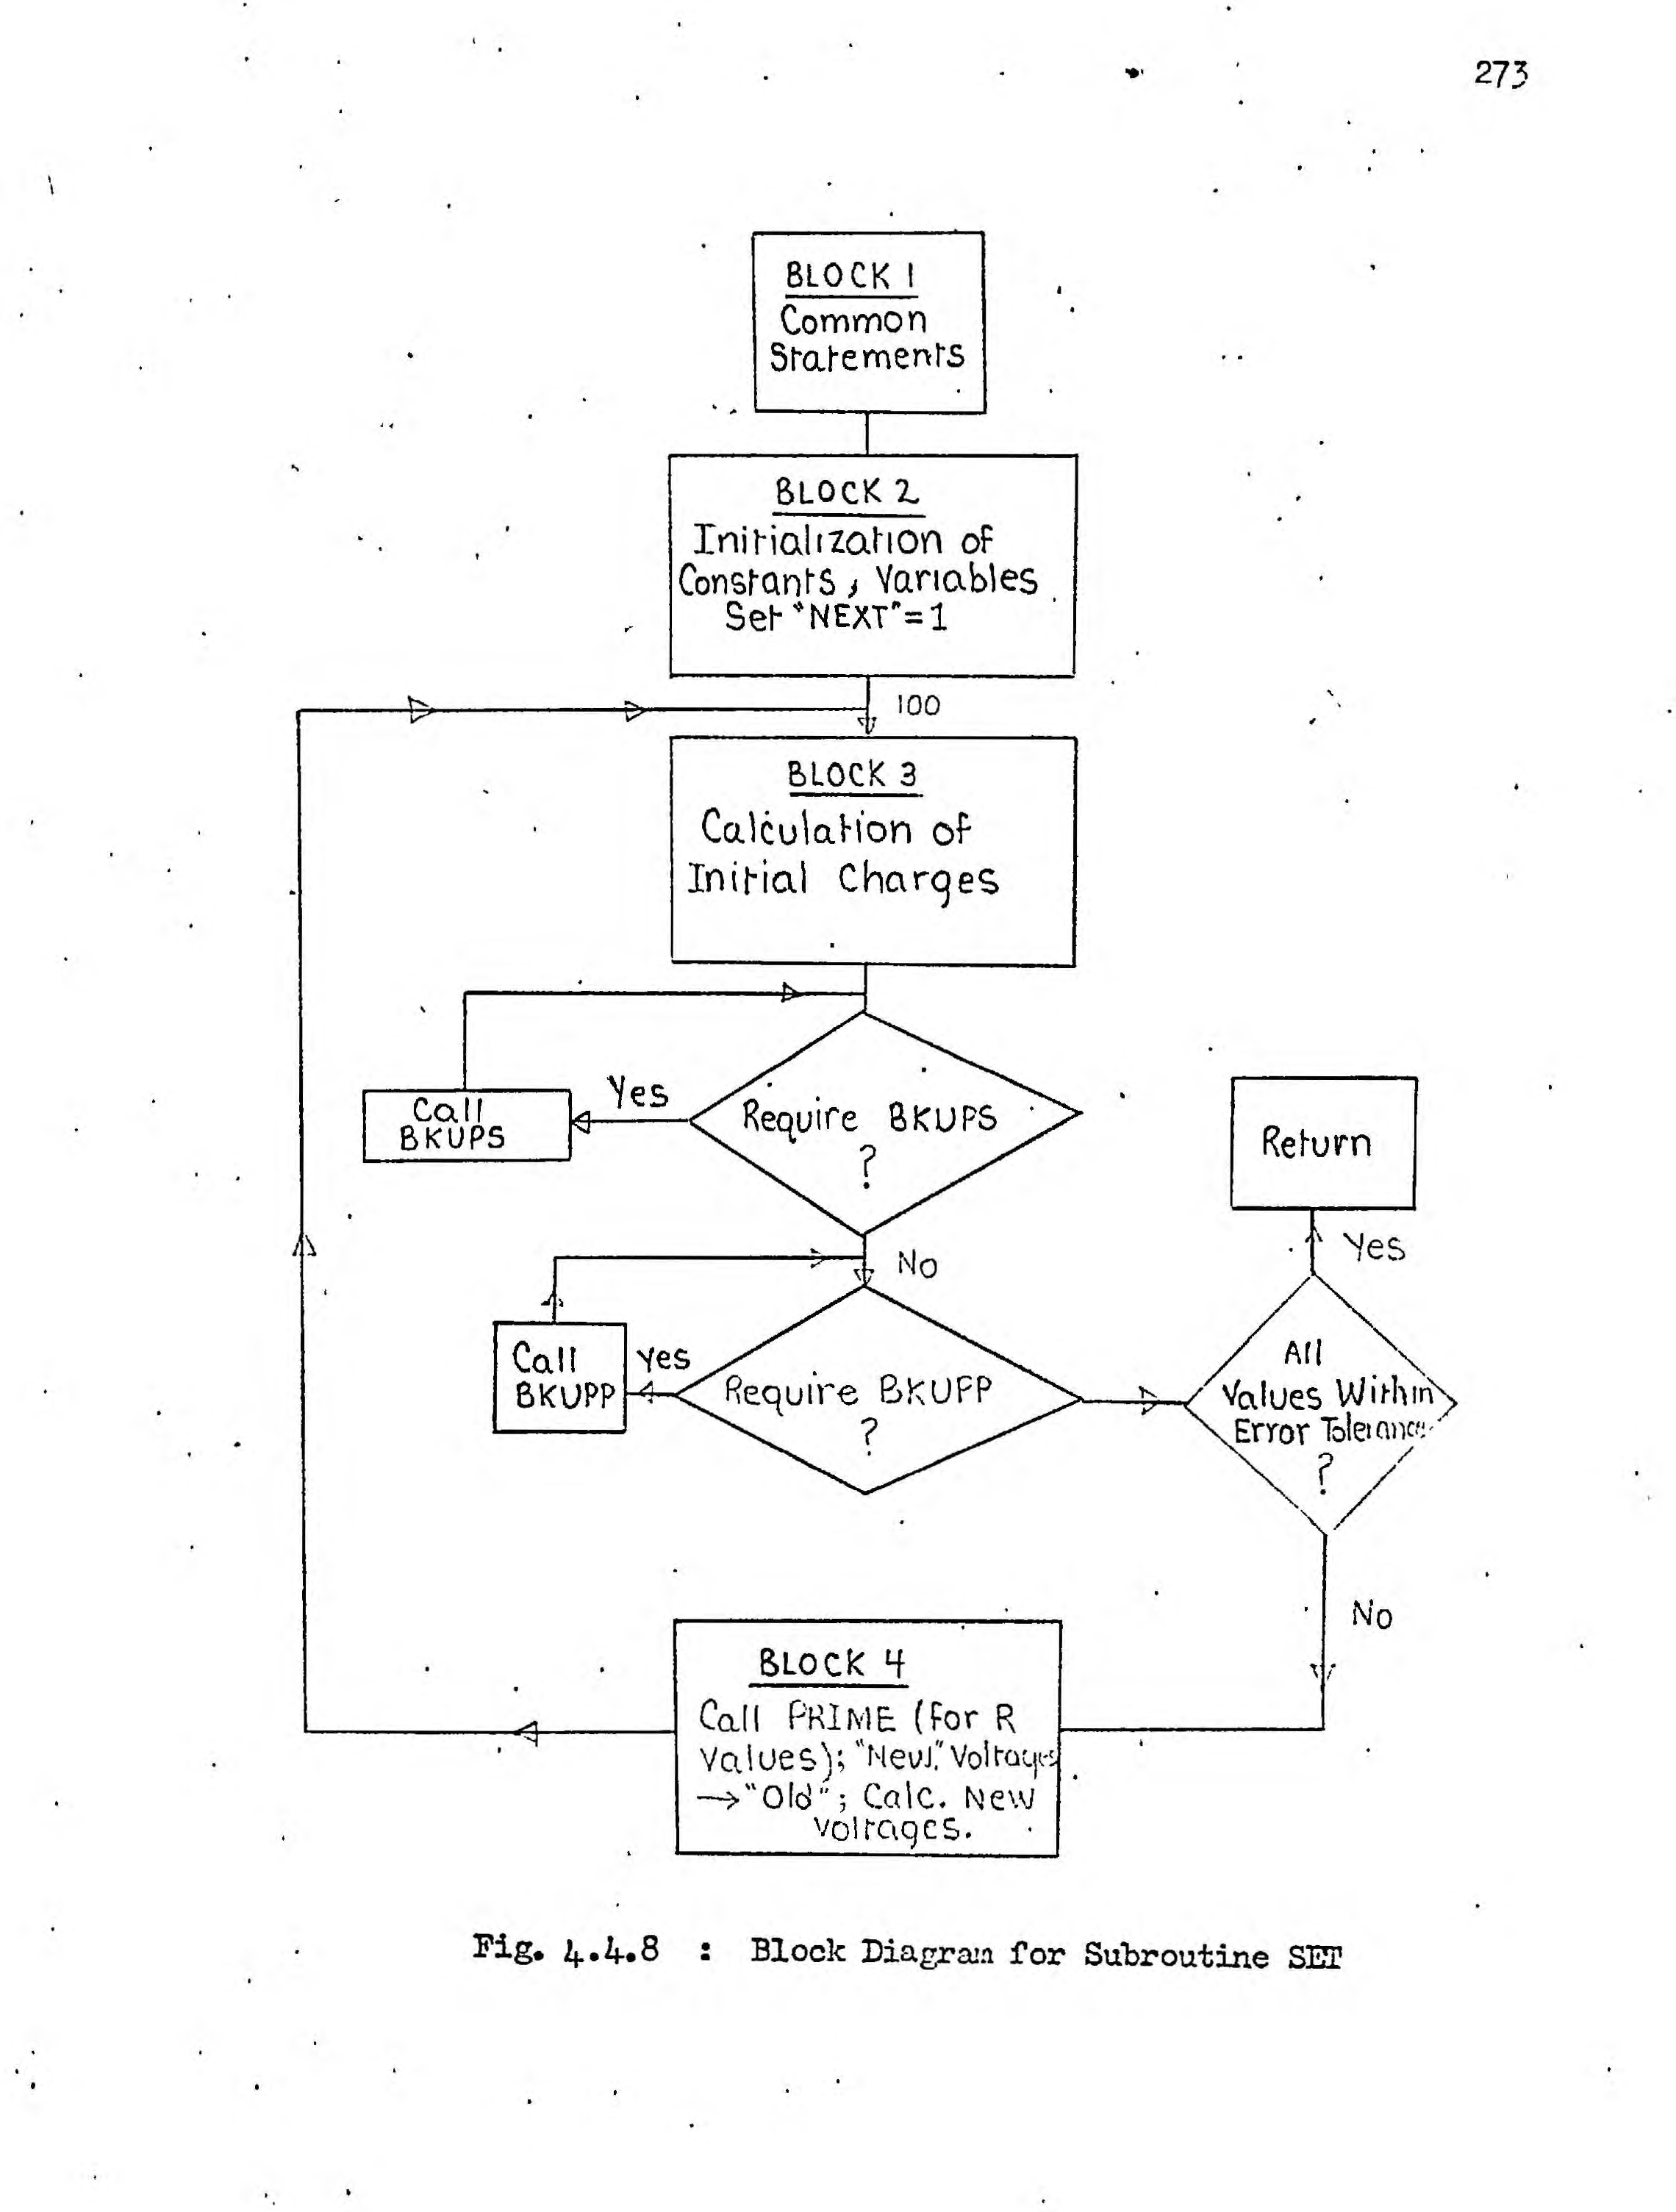 273
BLOCK 1
Common
Statements
BLOCK 2
Initialization of
Constants, Variables
Set "NEXT"=1
100
BLOCK 3
Calculation of
Initial Charges
Yes
Call
BKUPS
Require BKUPS
?
Return
Yes
No
Call
BKUPP
Yes
Require BKUPP
?
All
Values Within
Error Tolerance
?
No
BLOCK 4
Call PRIME (for R
values); "New" Voltages
→"Old"; Calc. New
voltages.
Fig. 4.4.8 : Block Diagram for Subroutine SET